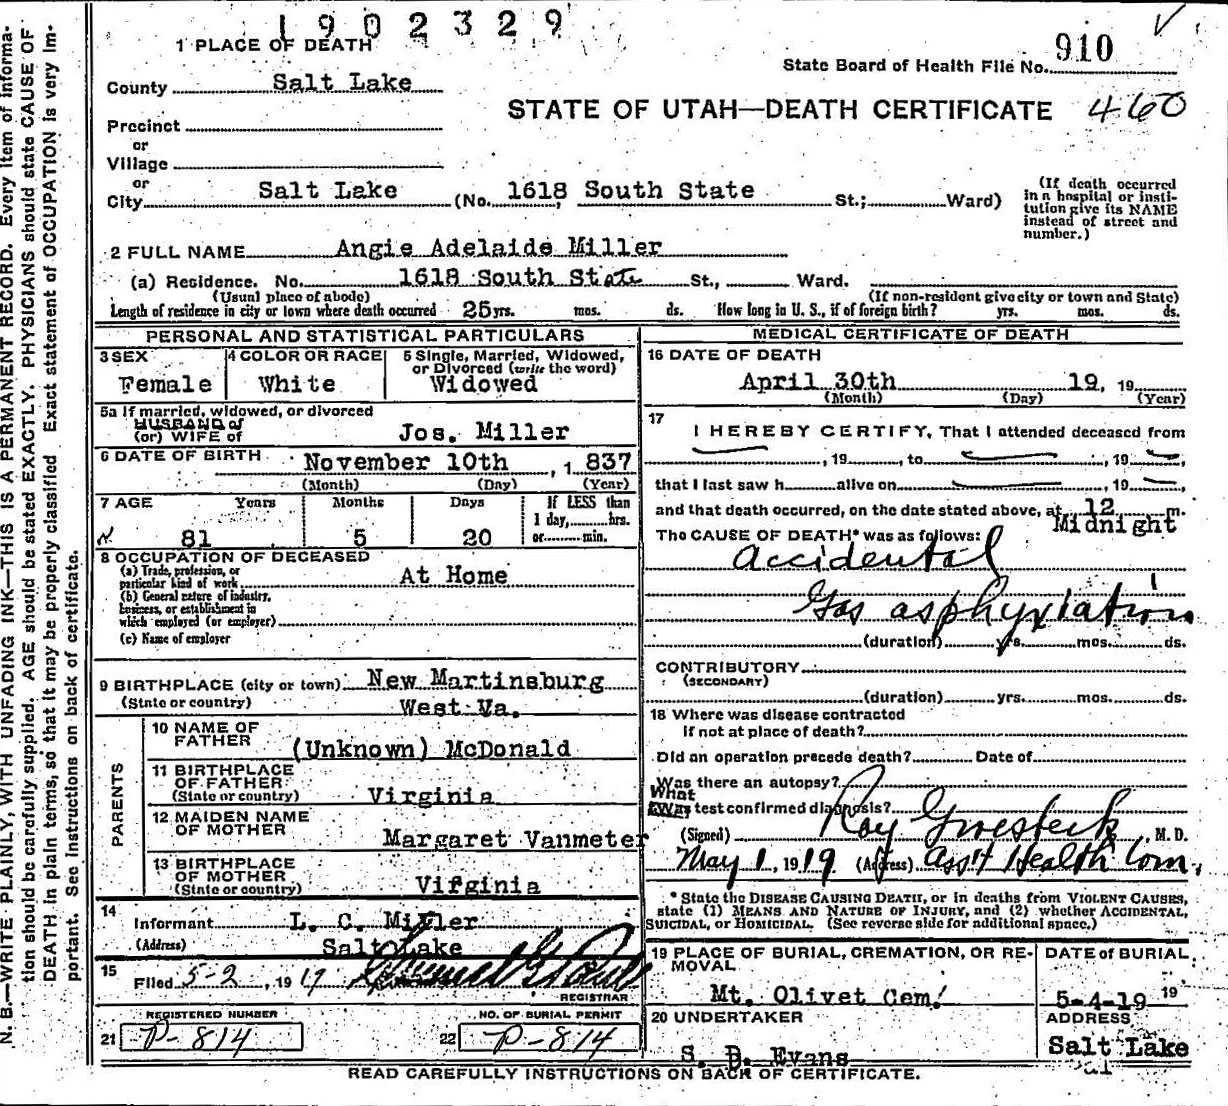 1902329
1 PLACE OF DEATH
State Board of Health File No. 910
County Salt Lake
STATE OF UTAH—DEATH CERTIFICATE 460
Precinct
or
Village
or
City Salt Lake (No. 1618 South State St.; Ward)
(If death occurred
in a hospital or insti-
tution give its NAME
instead of street and
number.)
2 FULL NAME Angie Adelaide Miller
(a) Residence. No. 1618 South State St., Ward.
(Usual place of abode) (If non-resident give city or town and State)
Length of residence in city or town where death occurred 25 yrs. mos. ds. How long in U. S., if of foreign birth? yrs. mos. ds.
PERSONAL AND STATISTICAL PARTICULARS
3 SEX
Female
4 COLOR OR RACE
White
5 Single, Married, Widowed,
or Divorced (write the word)
Widowed
5a If married, widowed, or divorced
HUSBAND of
(or) WIFE of Jos. Miller
6 DATE OF BIRTH November 10th, 1837
(Month) (Day) (Year)
7 AGE Years Months Days
81 5 20
If LESS than
1 day, hrs.
or min.
8 OCCUPATION OF DECEASED
(a) Trade, profession, or
particular kind of work At Home
(b) General nature of industry,
business, or establishment in
which employed (or employer)
(c) Name of employer
9 BIRTHPLACE (city or town) New Martinsburg
(State or country) West Va.
PARENTS
10 NAME OF
FATHER (Unknown) McDonald
11 BIRTHPLACE
OF FATHER
(State or country) Virginia
12 MAIDEN NAME
OF MOTHER Margaret Vanmeter
13 BIRTHPLACE
OF MOTHER
(State or country) Virginia
14
Informant L. C. Miller
(Address) Salt Lake
15
Filed 5-2, 1919
REGISTRAR
REGISTERED NUMBER
21 P-814
NO. OF BURIAL PERMIT
22 P-814
MEDICAL CERTIFICATE OF DEATH
16 DATE OF DEATH
April 30th 19, 19
(Month) (Day) (Year)
17
I HEREBY CERTIFY, That I attended deceased from
, 19 , to , 19 ,
that I last saw h alive on , 19 ,
and that death occurred, on the date stated above, at 12 m.
Midnight
The CAUSE OF DEATH* was as follows:
Accidental
Gas asphyxiation
(duration) yrs. mos. ds.
CONTRIBUTORY
(SECONDARY)
(duration) yrs. mos. ds.
18 Where was disease contracted
if not at place of death?
Did an operation precede death? Date of
Was there an autopsy?
What
test confirmed diagnosis?
(Signed) Roy M. D.
May 1, 1919 (Address) Ass't Health Com.
* State the DISEASE CAUSING DEATH, or in deaths from VIOLENT CAUSES,
state (1) MEANS AND NATURE OF INJURY, and (2) whether ACCIDENTAL,
SUICIDAL, or HOMICIDAL. (See reverse side for additional space.)
19 PLACE OF BURIAL, CREMATION, OR RE-
MOVAL
Mt. Olivet Cem.
DATE of BURIAL
5-4-19 19
20 UNDERTAKER
S. D. Evans
ADDRESS
Salt Lake
READ CAREFULLY INSTRUCTIONS ON BACK OF CERTIFICATE.
N. B.—WRITE PLAINLY, WITH UNFADING INK—THIS IS A PERMANENT RECORD. Every item of informa-
tion should be carefully supplied. AGE should be stated EXACTLY. PHYSICIANS should state CAUSE OF
DEATH in plain terms, so that it may be properly classified. Exact statement of OCCUPATION is very im-
portant. See instructions on back of certificate.